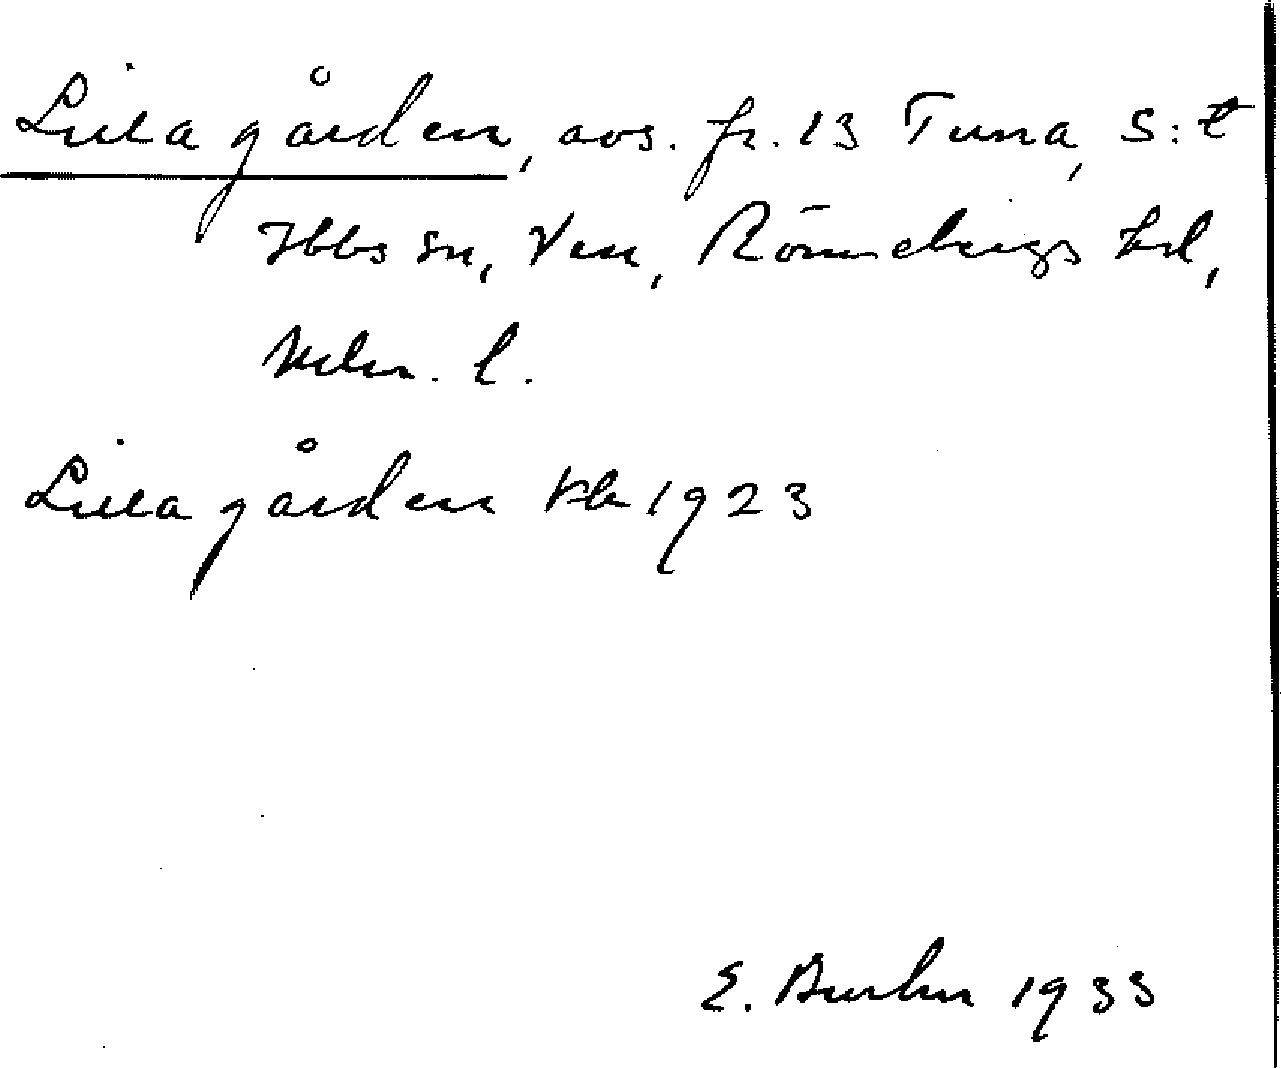 Lilla gården, avs. fr. 13 Tuna, S:t
Ibbs sn, Ven, Rönnebergs hd,
Malm. l.
Lilla gården kb 1923
E. 1933